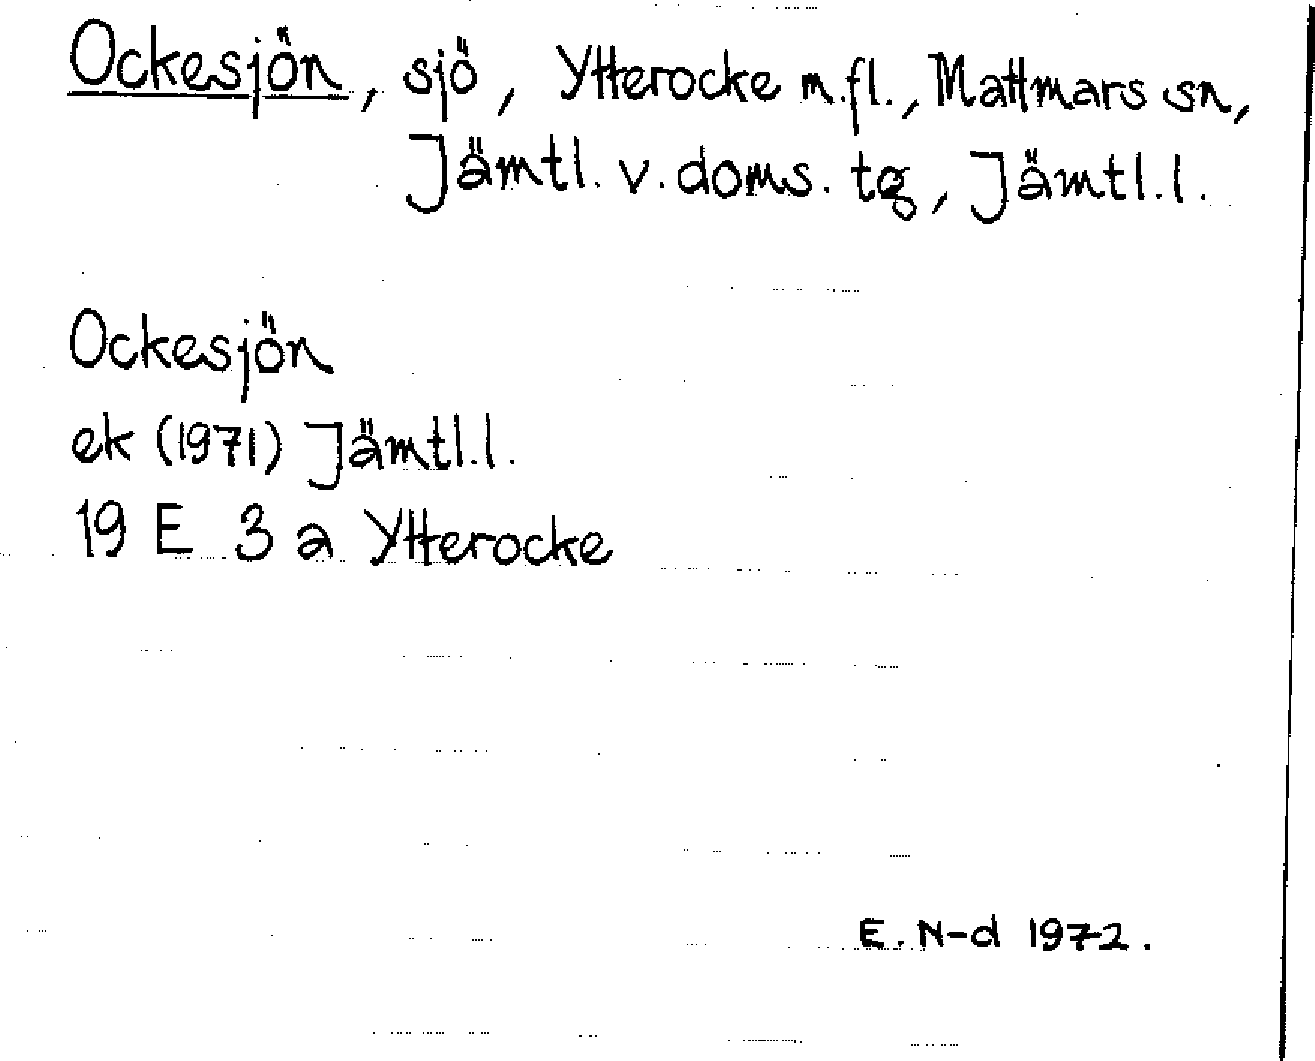 Ockesjön, sjö, Ytterocke m.fl., Mattmars sn,
Jämtl. v. doms. tg, Jämtl.l.
Ockesjön
ek (1971) Jämtl.l.
19 E 3 a Ytterocke
E. N-d 1972.